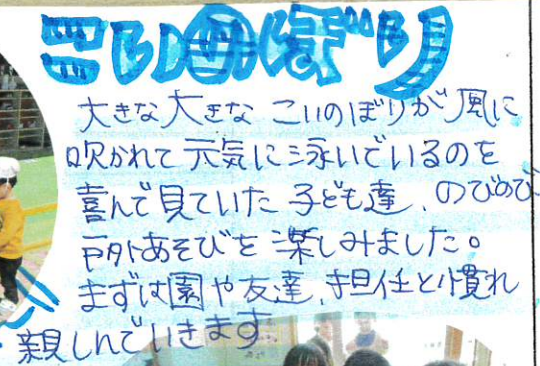 こいのぼり
大きな大きな こいのぼりが風に
吹かれて元気に泳いでいるのを
喜んで見ていた子ども達、のびのび
戸外あそびを楽しみました。
まずは園や友達、担任と慣れ
親しんでいきます